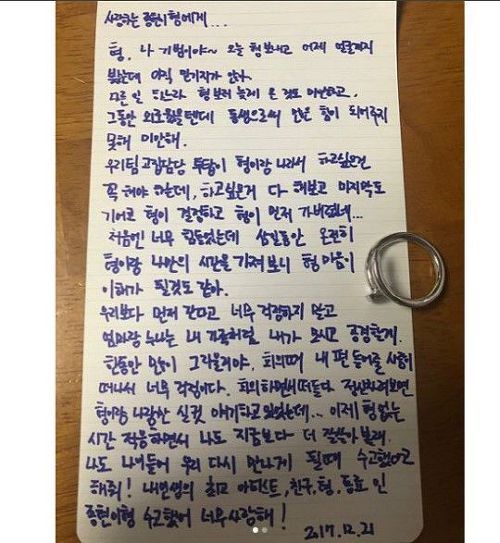 사랑하는 종현이형에게...
형, 나 기범이야~ 오늘 형 보내고 어제 얼굴까지
봤는데 아직 믿기지가 않아.
다른 일 하느라 형 보러 늦게 온 것도 미안하고,
그동안 외로웠을텐데 동생으로써 많은 힘이 되어주지
못해 미안해.
우리팀 고집담당 투탑이 형이랑 나라서 하고싶은건
꼭 해야 하는데, 하고싶은거 다 해보고 마지막도
기어코 형이 결정하고 형이 먼저 가버렸네...
처음엔 너무 힘들었는데 삼일동안 온전히
형이랑 나만의 시간을 가져보니 형 마음이
이해가 될것도 같아.
우리보다 먼저 간다고 너무 걱정하지 말고
엄마랑 누나는 내 가족처럼 내가 모시고 공경할게.
한동안 많이 그리울거야, 회의때 내 편 들어줄 사람이
떠나서 너무 걱정이다. 회의하면서 떠들다 정신차려보면
형이랑 나랑만 실컷 얘기하고 있었는데... 이제 형 없는
시간 적응하면서 나도 지금보다 더 잘살아 볼래.
나도 나이들어 우리 다시 만나게 될 때 수고했다고
해줘! 내 인생의 최고 아티스트, 친구, 형, 동료 인
종현이형 수고했어 너무 사랑해!
2017.12.21